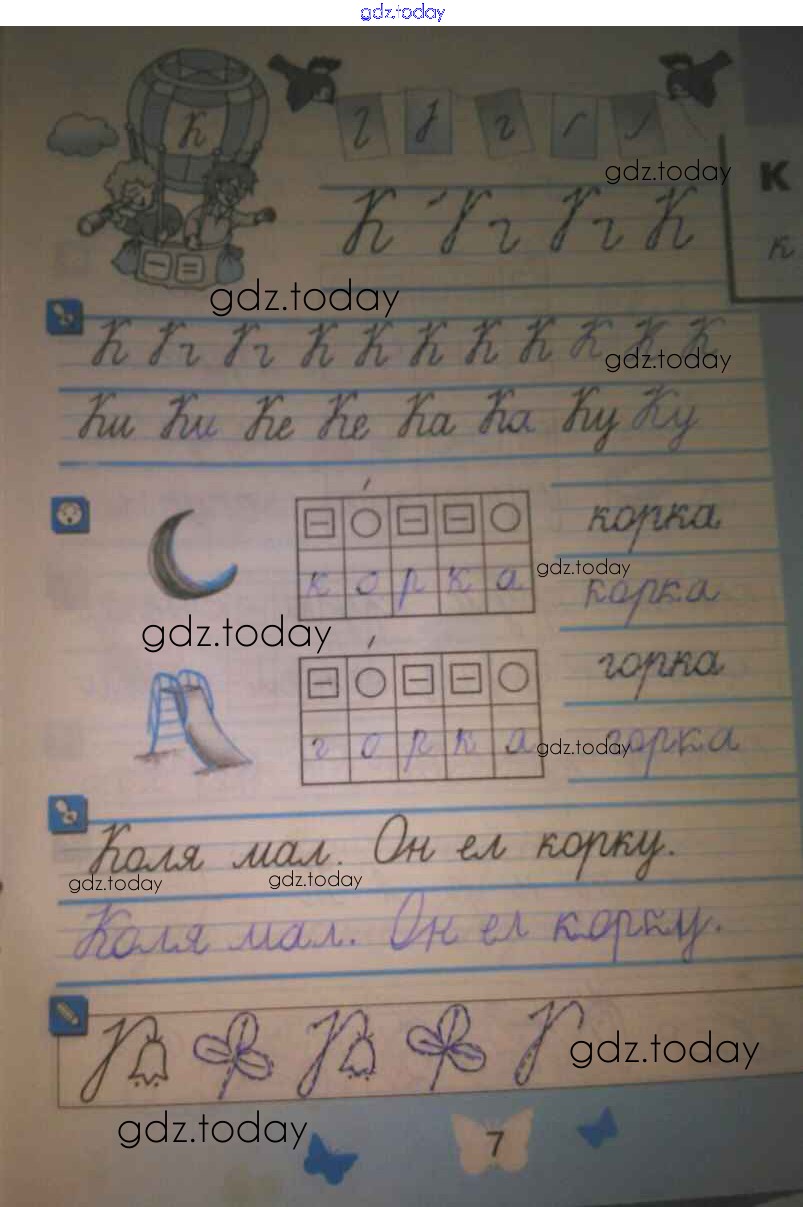 gdz.today
К
gdz.today
К
к
К К
gdz.today
К К К К К К К К
gdz.today
Ки Ки Ке Ке Ка Ка Ку Ку
корка
к о р к а
gdz.today
корка
gdz.today
горка
г о р к а
gdz.today
горка
Коля мал. Он ел корку.
gdz.today
gdz.today
Коля мал. Он ел корку.
gdz.today
gdz.today
7